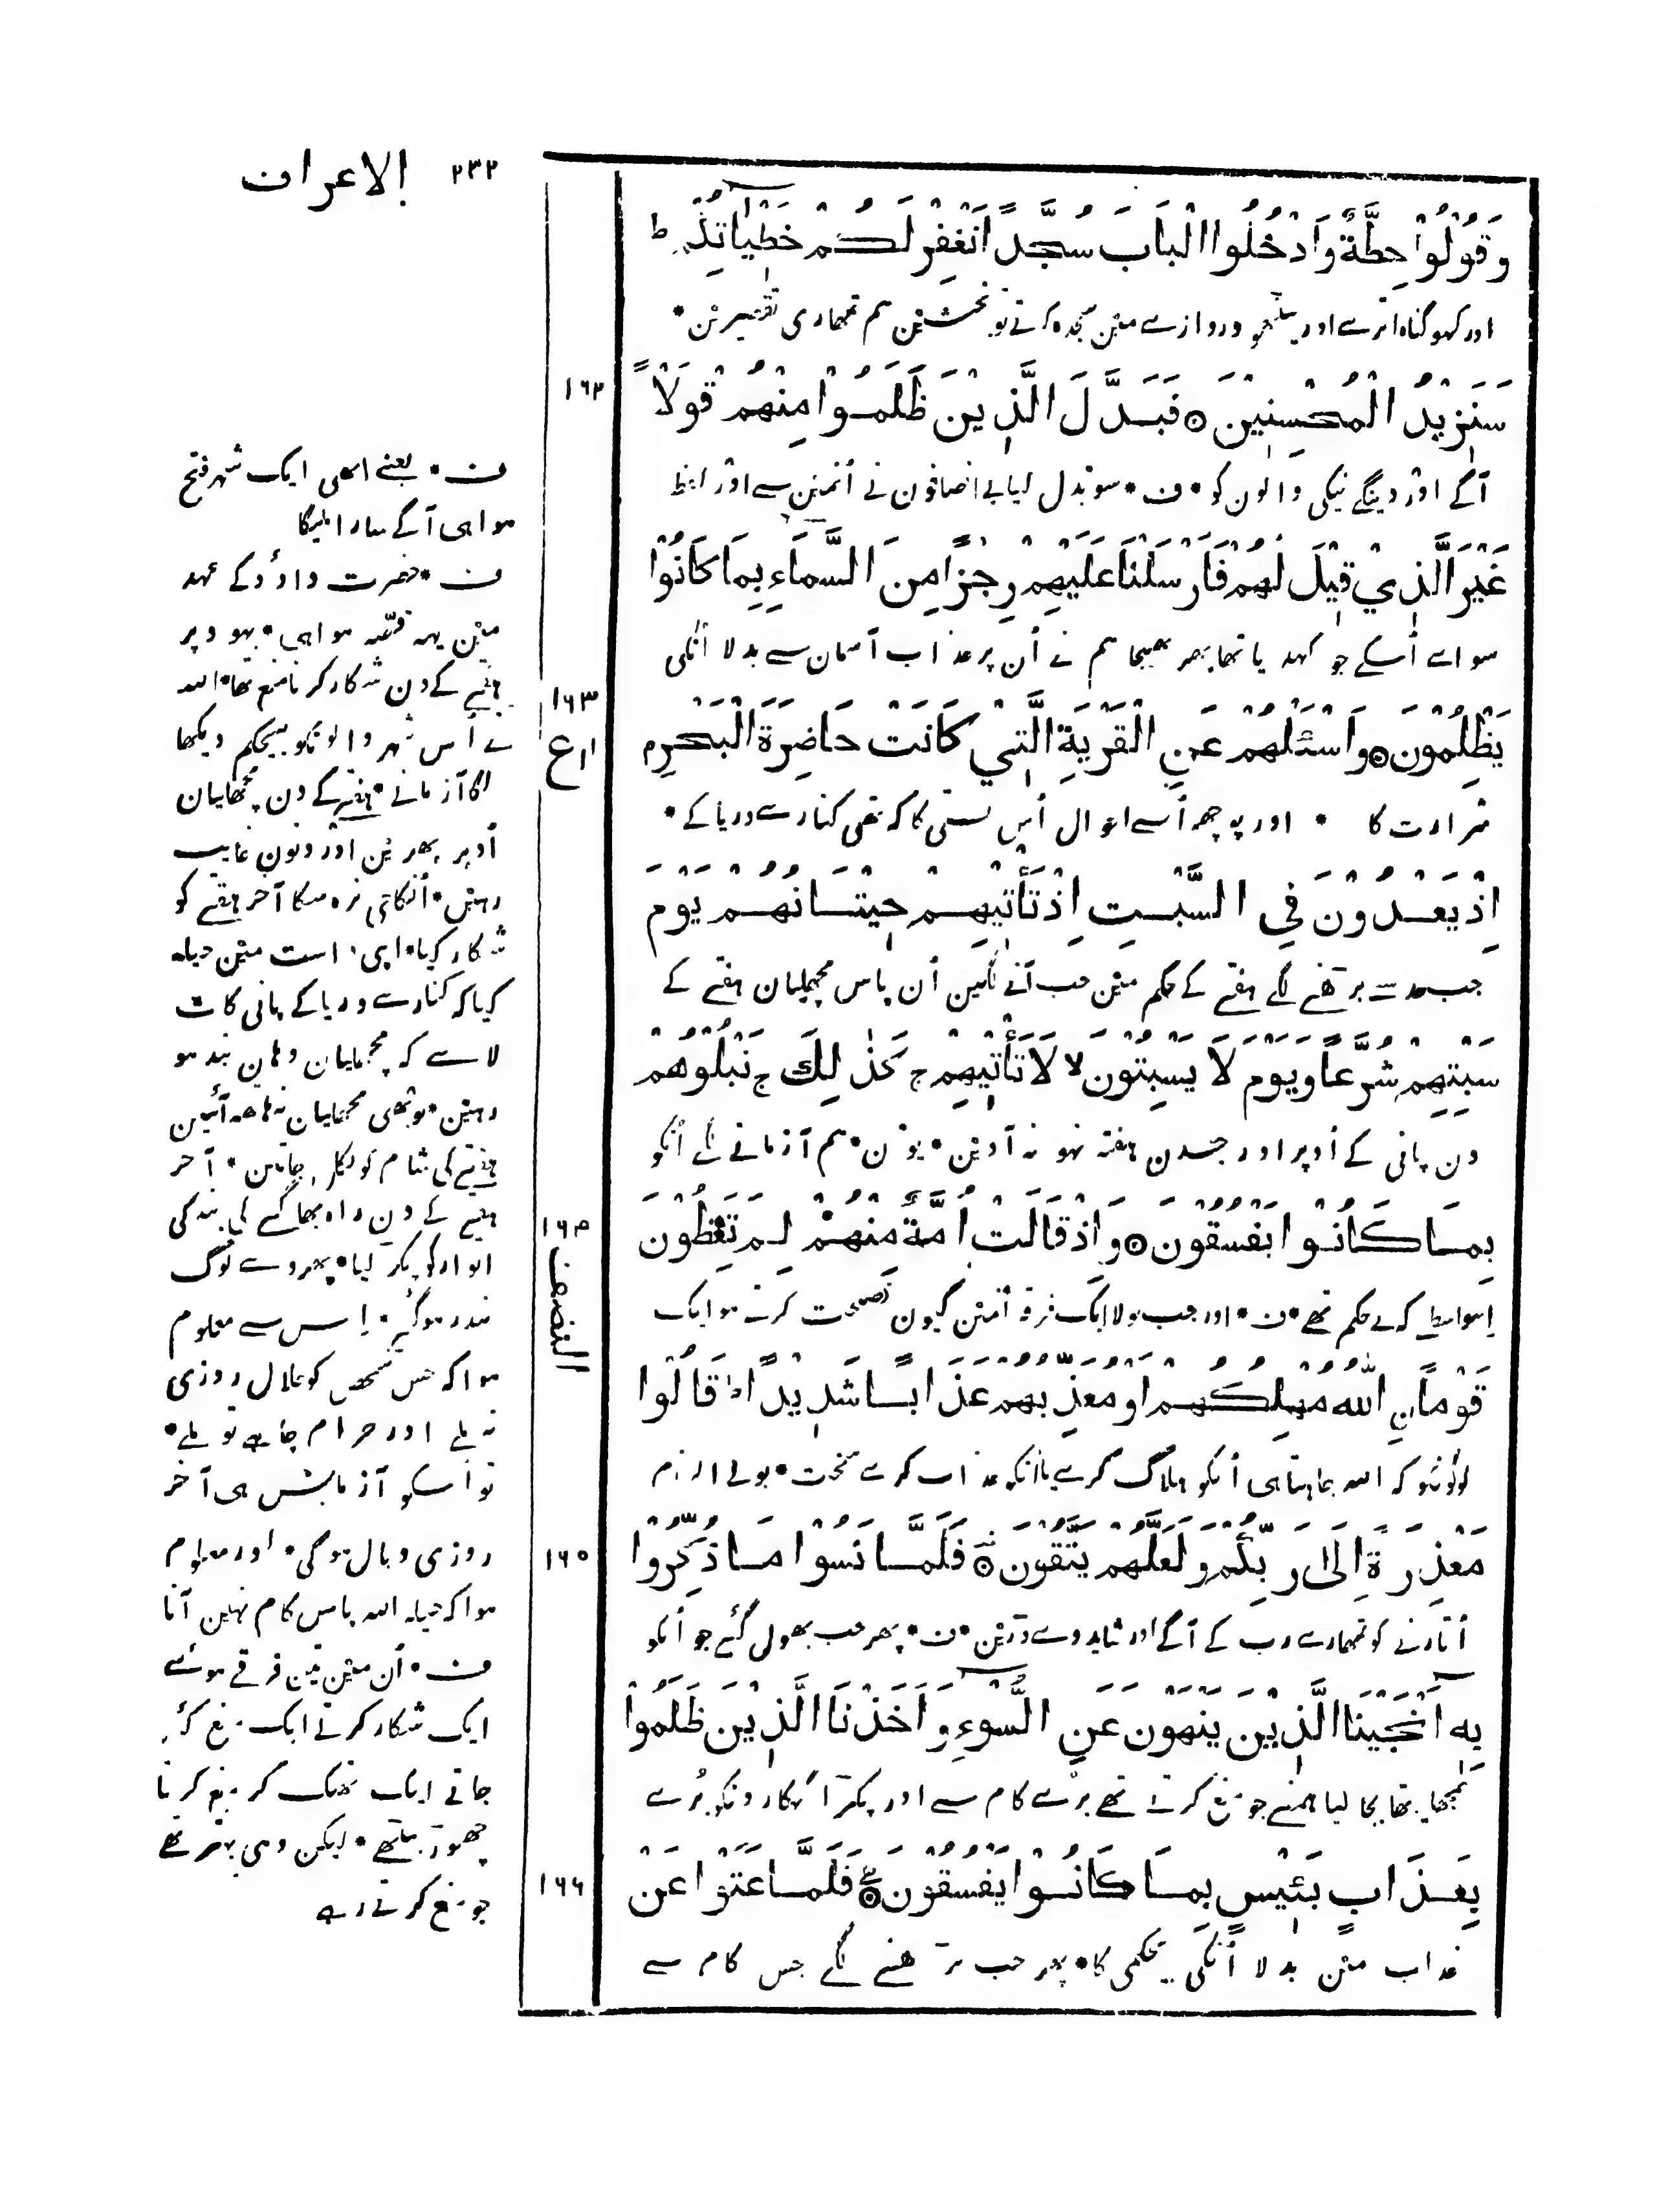 ۲۳۲ الاعراف
وَقُولُوا حِطَّةٌ وَادْخُلُوا الْبَابَ سُجَّدًا نَغْفِرْ لَكُمْ خَطِيْاٰتِكُمْ ط
اور کہو گناہ اترے اور پیٹھو دروازے میٚن سجدہ کرتے تو بخشیٚن ہم تمھاری تقصیریٚن *
سَنَزِيْدُ الْمُحْسِنِيْنَ ۞ فَبَدَّلَ الَّذِيْنَ ظَلَمُوْا مِنْهُمْ قَوْلًا
۱۶۲
آگے اوٚر دینگے نیکی والون کو * ف * سو بدل لیا بے انصافون نے اُنمیٚن سے اوٚر لفظ
غَيْرَ الَّذِيْ قِيْلَ لَهُمْ فَاَرْسَلْنَا عَلَيْهِمْ رِجْزًا مِنَ السَّمَآءِ بِمَا كَانُوْا
سواے اُسکے جو کہہ دیا تھا پھر بھیجا ہم نے اُن پر عذاب آسمان سے بدلا اُنکی
يَظْلِمُوْنَ ۞ وَاسْئَلْهُمْ عَنِ الْقَرْيَةِ الَّتِيْ كَانَتْ حَاضِرَةَ الْبَحْرِ م
۱۶۳
شرارت کا * اور پوچھہ اُنسے احوال اُس بستی کا کہ تھی کنارے دریا کے *
اِذْ يَعْدُوْنَ فِي السَّبْتِ اِذْ تَأْتِيْهِمْ حِيْتَانُهُمْ يَوْمَ
جب حد سے بڑھنے لگے ہفتے کے حکم میٚن جب آنے لگین اُن پاس مچھلیان ہفتے کے
سَبْتِهِمْ شُرَّعًا وَّيَوْمَ لَا يَسْبِتُوْنَ لا لَا تَأْتِيْهِمْ ج كَذٰلِكَ ج نَبْلُوْهُمْ
دن پانی کے اُوپر اور جسدن ہفتہ نہو نہ آویٚن * یوٚن * ہم آزمانے لگے اُنکو
بِمَا كَانُوْا يَفْسُقُوْنَ ۞ وَاِذْ قَالَتْ اُمَّةٌ مِنْهُمْ لِمَ تَعِظُوْنَ
۱۶۴
النصف
اِسواسطے کہ بے حکم تھے * ف * اور جب بولا ایک فرقہ اُنمیٚن کیون نصیحت کرتے ہو ایک
قَوْمًا نِ اللّٰهُ مُهْلِكُهُمْ اَوْ مُعَذِّبُهُمْ عَذَابًا شَدِيْدًا ط قَالُوْا
لوگونکو کہ اللہ چاہتا ہی اُنکو ہلاک کرے یا اُنکو عذاب کرے سخت * بولے الزام
مَعْذِرَةً اِلٰى رَبِّكُمْ وَلَعَلَّهُمْ يَتَّقُوْنَ ۞ فَلَمَّا نَسُوْا مَا ذُكِّرُوْا
۱۶۵
اُتارنے کو تمھارے رب کے آگے اور شاید وے ڈریٚن * ف * پھر جب بھول گئے جو اُنکو
بِهٖ اَنْجَيْنَا الَّذِيْنَ يَنْهَوْنَ عَنِ السُّوْٓءِ وَاَخَذْنَا الَّذِيْنَ ظَلَمُوْا
سمجھایا تھا بچا لیا ہمنے جو منع کرتے تھے برے کام سے اور پکڑا گنہگارونکو بُرے
بِعَذَابٍ بَئِيْسٍ بِمَا كَانُوْا يَفْسُقُوْنَ ۞ فَلَمَّا عَتَوْا عَنْ
۱۶۶
عذاب میٚن بدلا اُنکی بیحکمی کا * پھر جب بڑھنے لگے جس کام سے
ف * یعنے ابھی ایک شہر فتح
ہوا ہی آگے سارا ملیگا
ف * حضرت داؤد کے عہد
میٚن یہہ قصّہ ہوا ہی * یہود پر
ہفتے کے دن شکار کرنا منع تھا * اللہ
نے اُس شہر والونکو بیحکم دیکھا
لگا آزمانے * ہفتے کے دن مچھلیان
اُوپر پھریٚن اوٚر دنون غایب
رہتیٚن * اُنکا جی نرہ سکا آخر ہفتے کو
شکار کیا * اپنی دانست میٚن حیلہ
کیا کہ کنارے دریا کے پانی کات
لاے کہ مچھلیان وہان بند ہو
رہیٚن * تو بھی مچھلیان نہ ہاتھہ آئین
ہفتے کی شام کو نکل جاتیٚن * آخر
ہفتے کے دن راہ بھاگنے کی بند کی
اتوار کو پکڑ لیا * پھر وے لوگ
بندر ہوگئے * اِس سے معلوم
ہوا کہ جس شخص کو حلال روزی
نہ ملے اور حرام چاہے تو ملے *
تو اُسکو آزمایش ہی آخر
روزی وبال ہوگی * اور معلوم
ہوا کہ حیلہ اللہ پاس کام نہین آتا
ف * اُن میٚن تین فرقے ہوئے
ایک شکار کرتے ایک منع کئے
جاتے ایک تھک کر منع کرنا
چھوڑ بیٹھے * لیکن وہی بہتر تھے
جو منع کرتے رہے